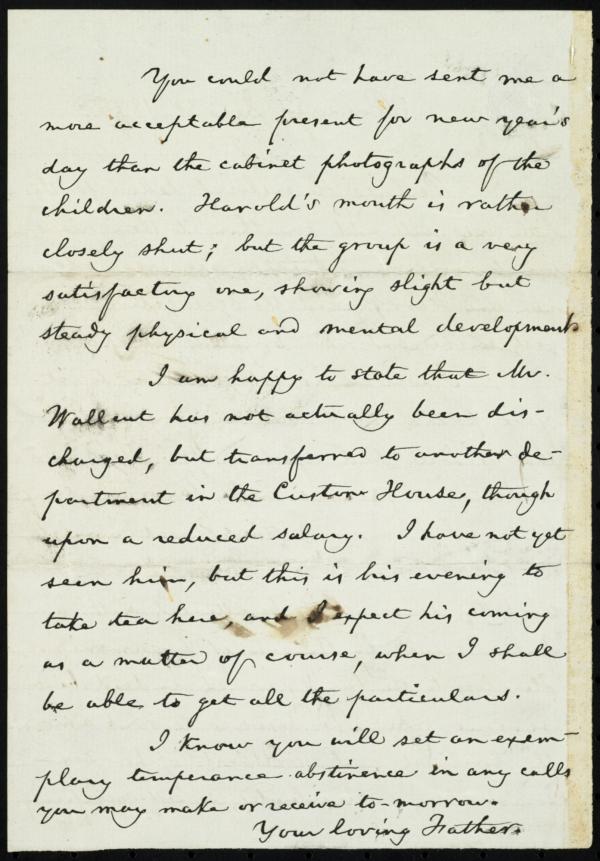 You could not have sent me a
more acceptable present for new year's
day than the cabinet photographs of the
children. Harold's mouth is rather
closely shut; but the group is a very
satisfactory one, showing slight but
steady physical and mental development.
I am happy to state that Mr.
Wallcut has not actually been dis-
charged, but transferred to another de-
partment in the Custom House, though
upon a reduced salary. I have not yet
seen him, but this is his evening to
take tea here, and I expect his coming
as a matter of course, when I shall
be able to get all the particulars.
I know you will set an exem-
plary temperance abstinence in any calls
you may make or receive to-morrow.
Your loving Father.